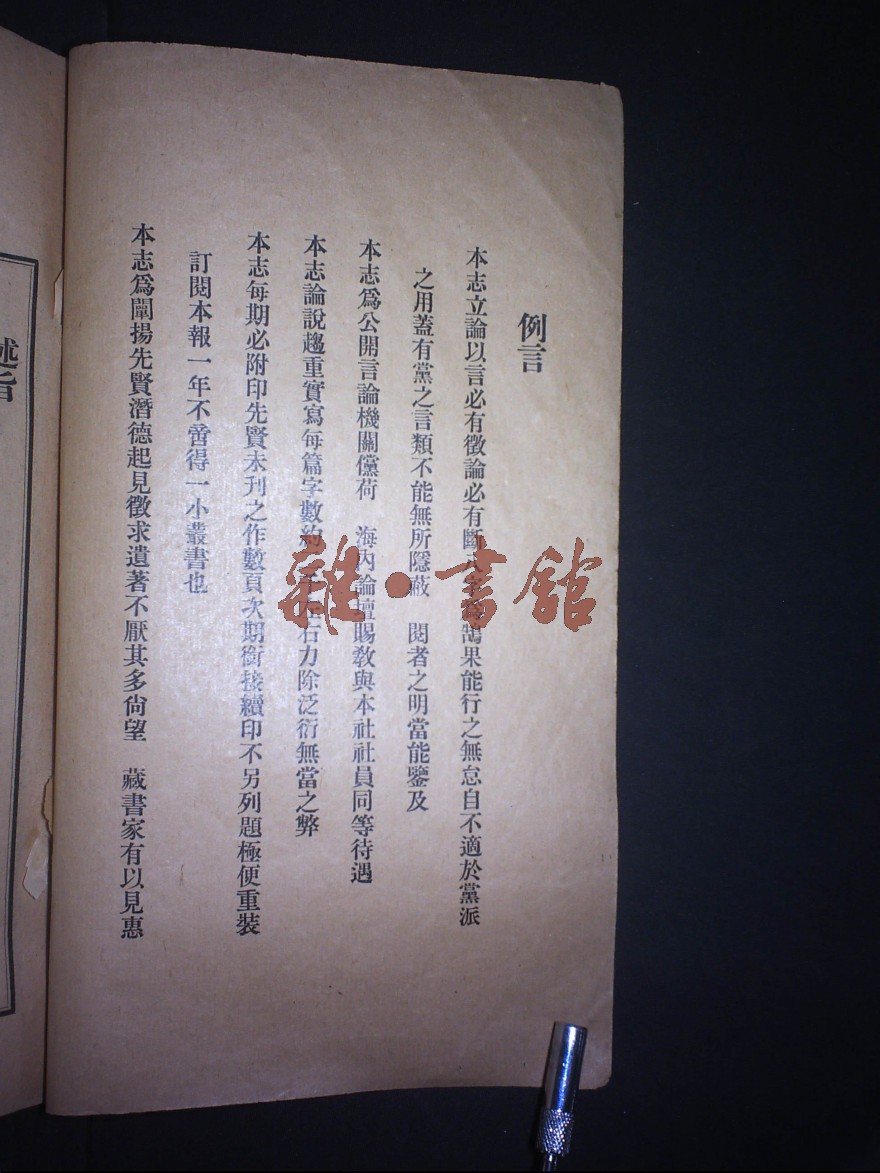 例言
本志立論以言必有徵論必有斷爲鵠果能行之無怠自不適於黨派
之用蓋有黨之言類不能無所隱蔽　閱者之明當能鑒及
本志爲公開言論機關儻荷　海內論壇賜敎與本社社員同等待遇
本志論說趨重實寫每篇字數約千左右力除泛衍無當之弊
本志每期必附印先賢未刊之作數頁次期銜接續印不另列題極便重裝
訂閱本報一年不啻得一小叢書也
本志爲闡揚先賢潛德起見徵求遺著不厭其多尙望　藏書家有以見惠
述旨
雜·書館